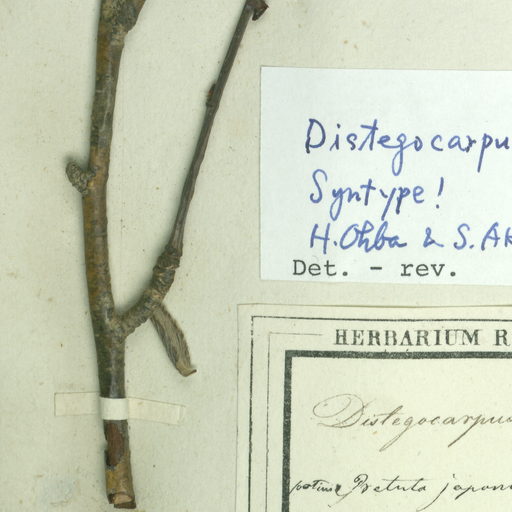 Distegocarpu
Syntype!
H. Ohba & S. Ak
Det. - rev.
HERBARIUM R
Distegocarpus
japoni